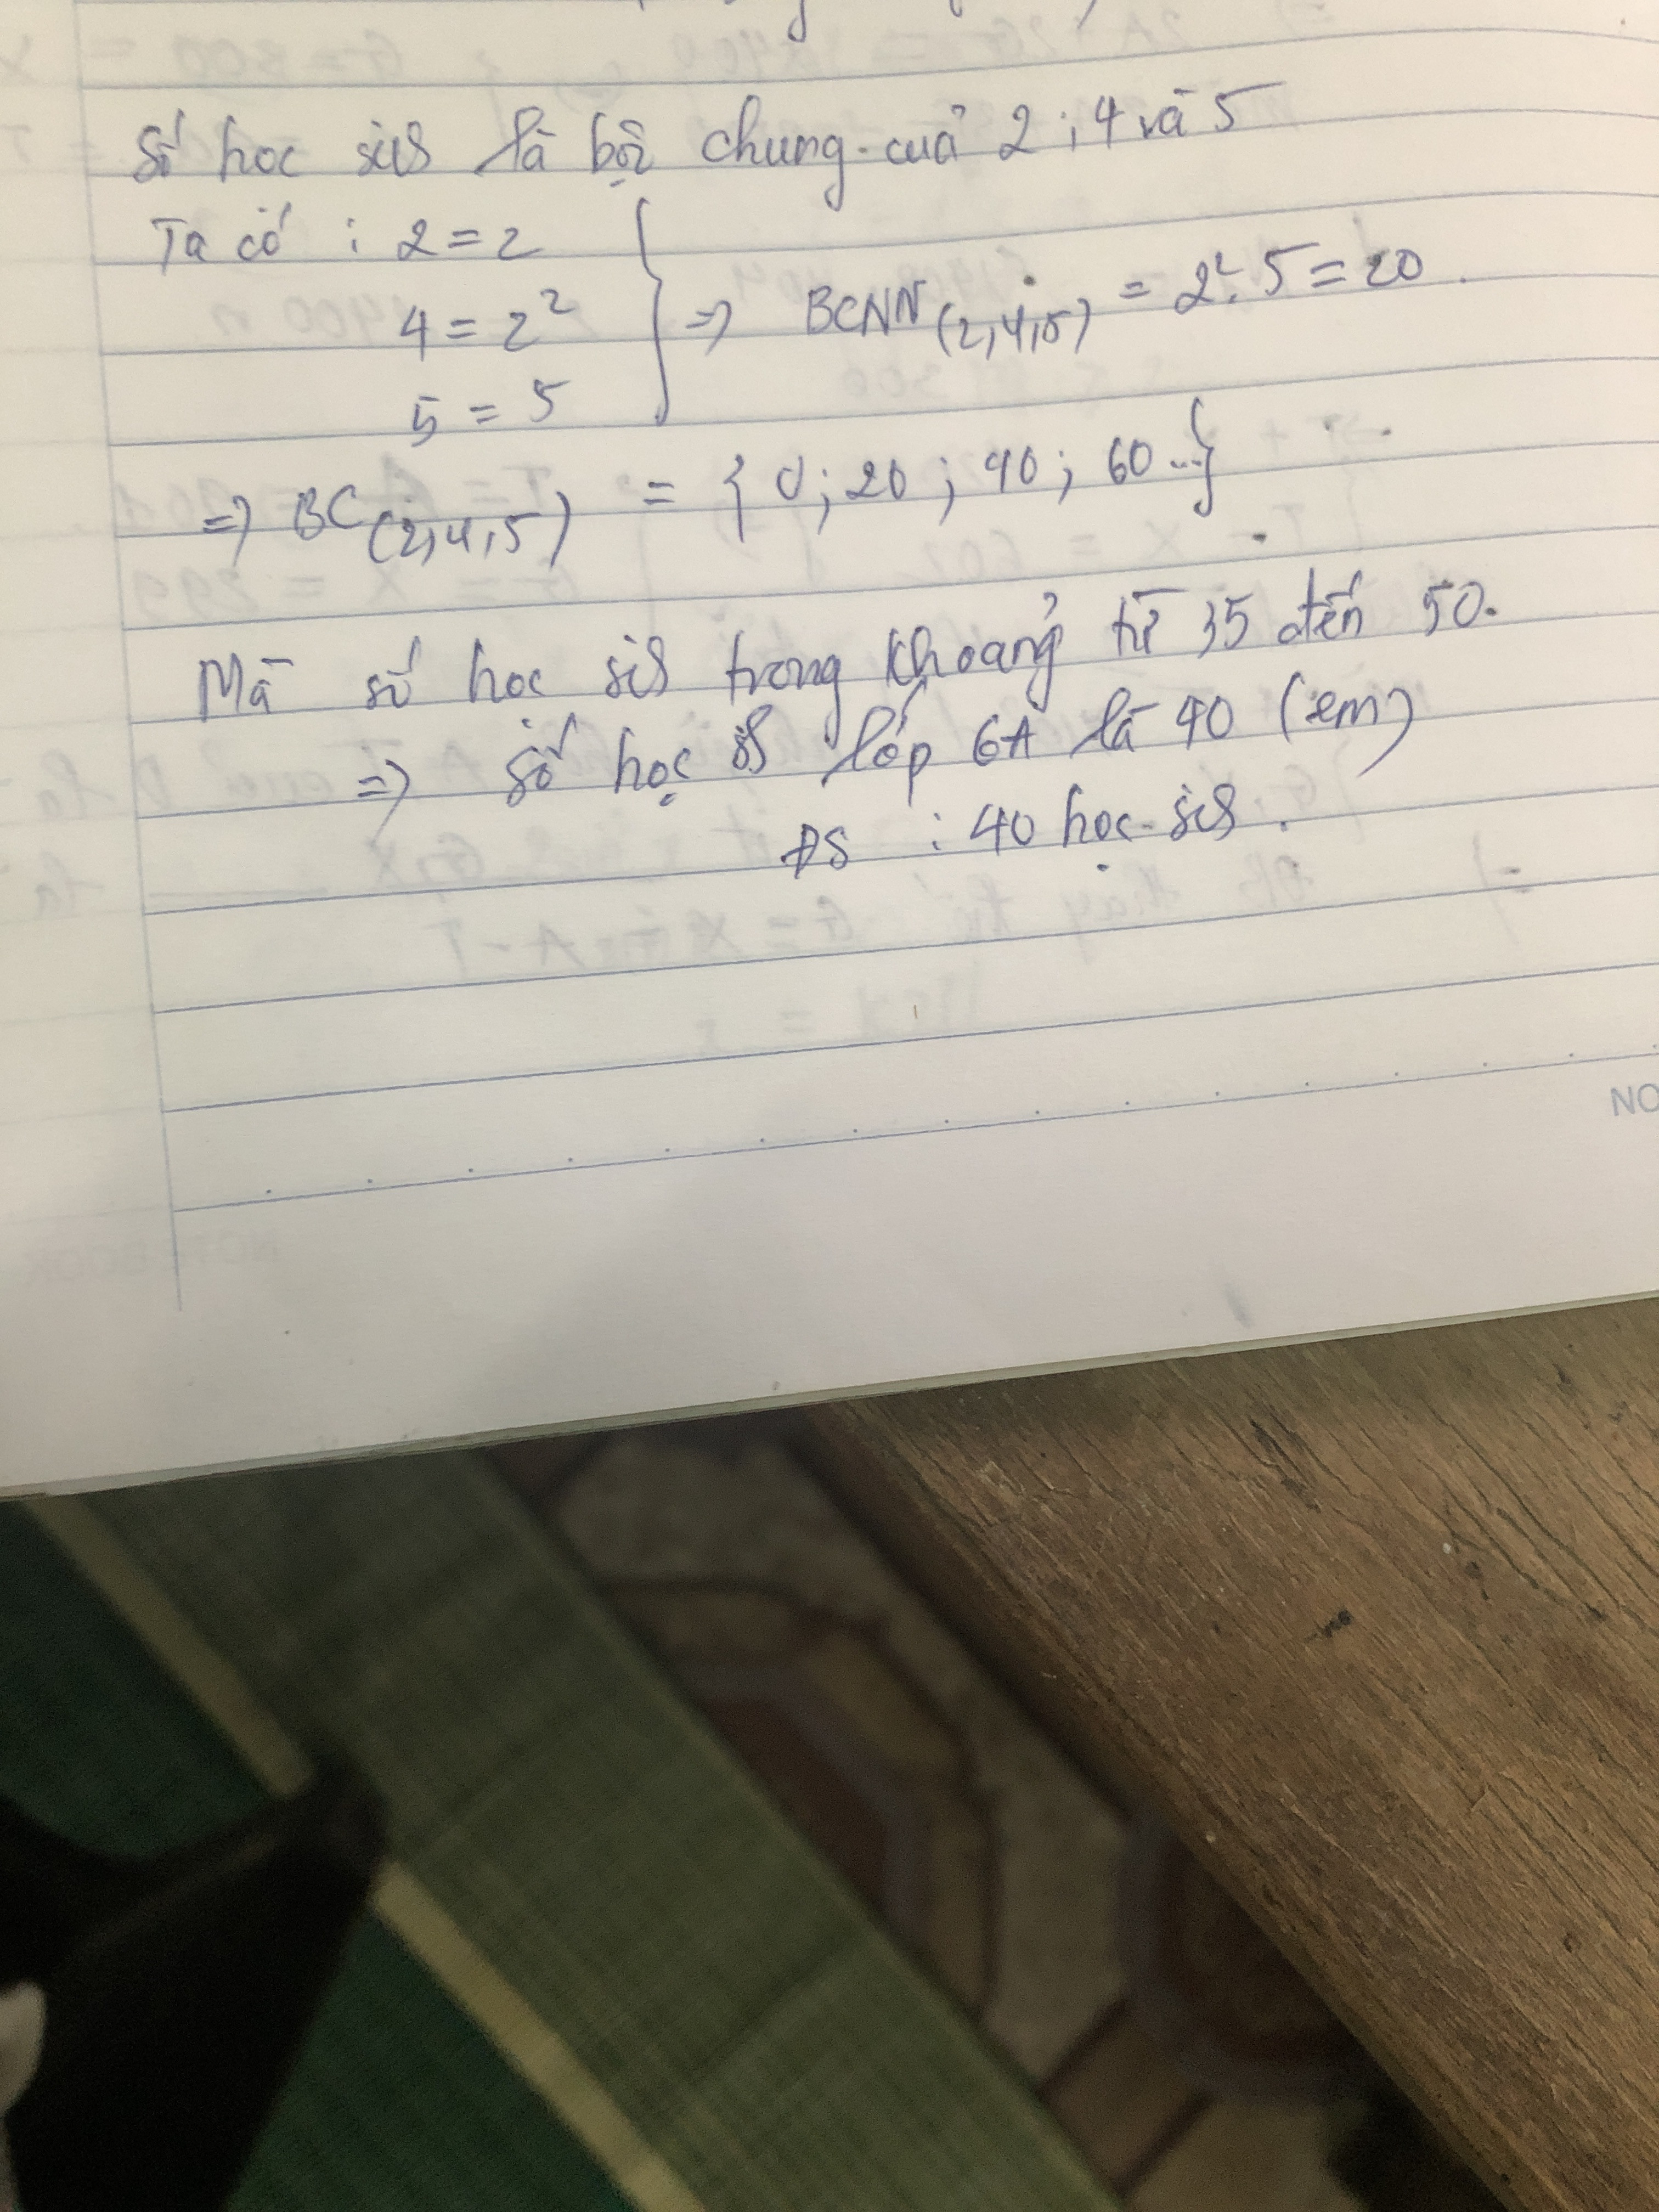 Số học sis là bội chung của 2 ; 4 và 5
Ta có : 2 = 2
4 = 2²
5 = 5
} => BCNN (2,4,5) = 2². 5 = 20.
=> BC (2,4,5) = { 0 ; 20 ; 40 ; 60 ...}
Mà số học sis trong khoảng từ 35 đến 50.
=> số học lớp 6A là 40 (em)
ĐS : 40 học sis.
NO